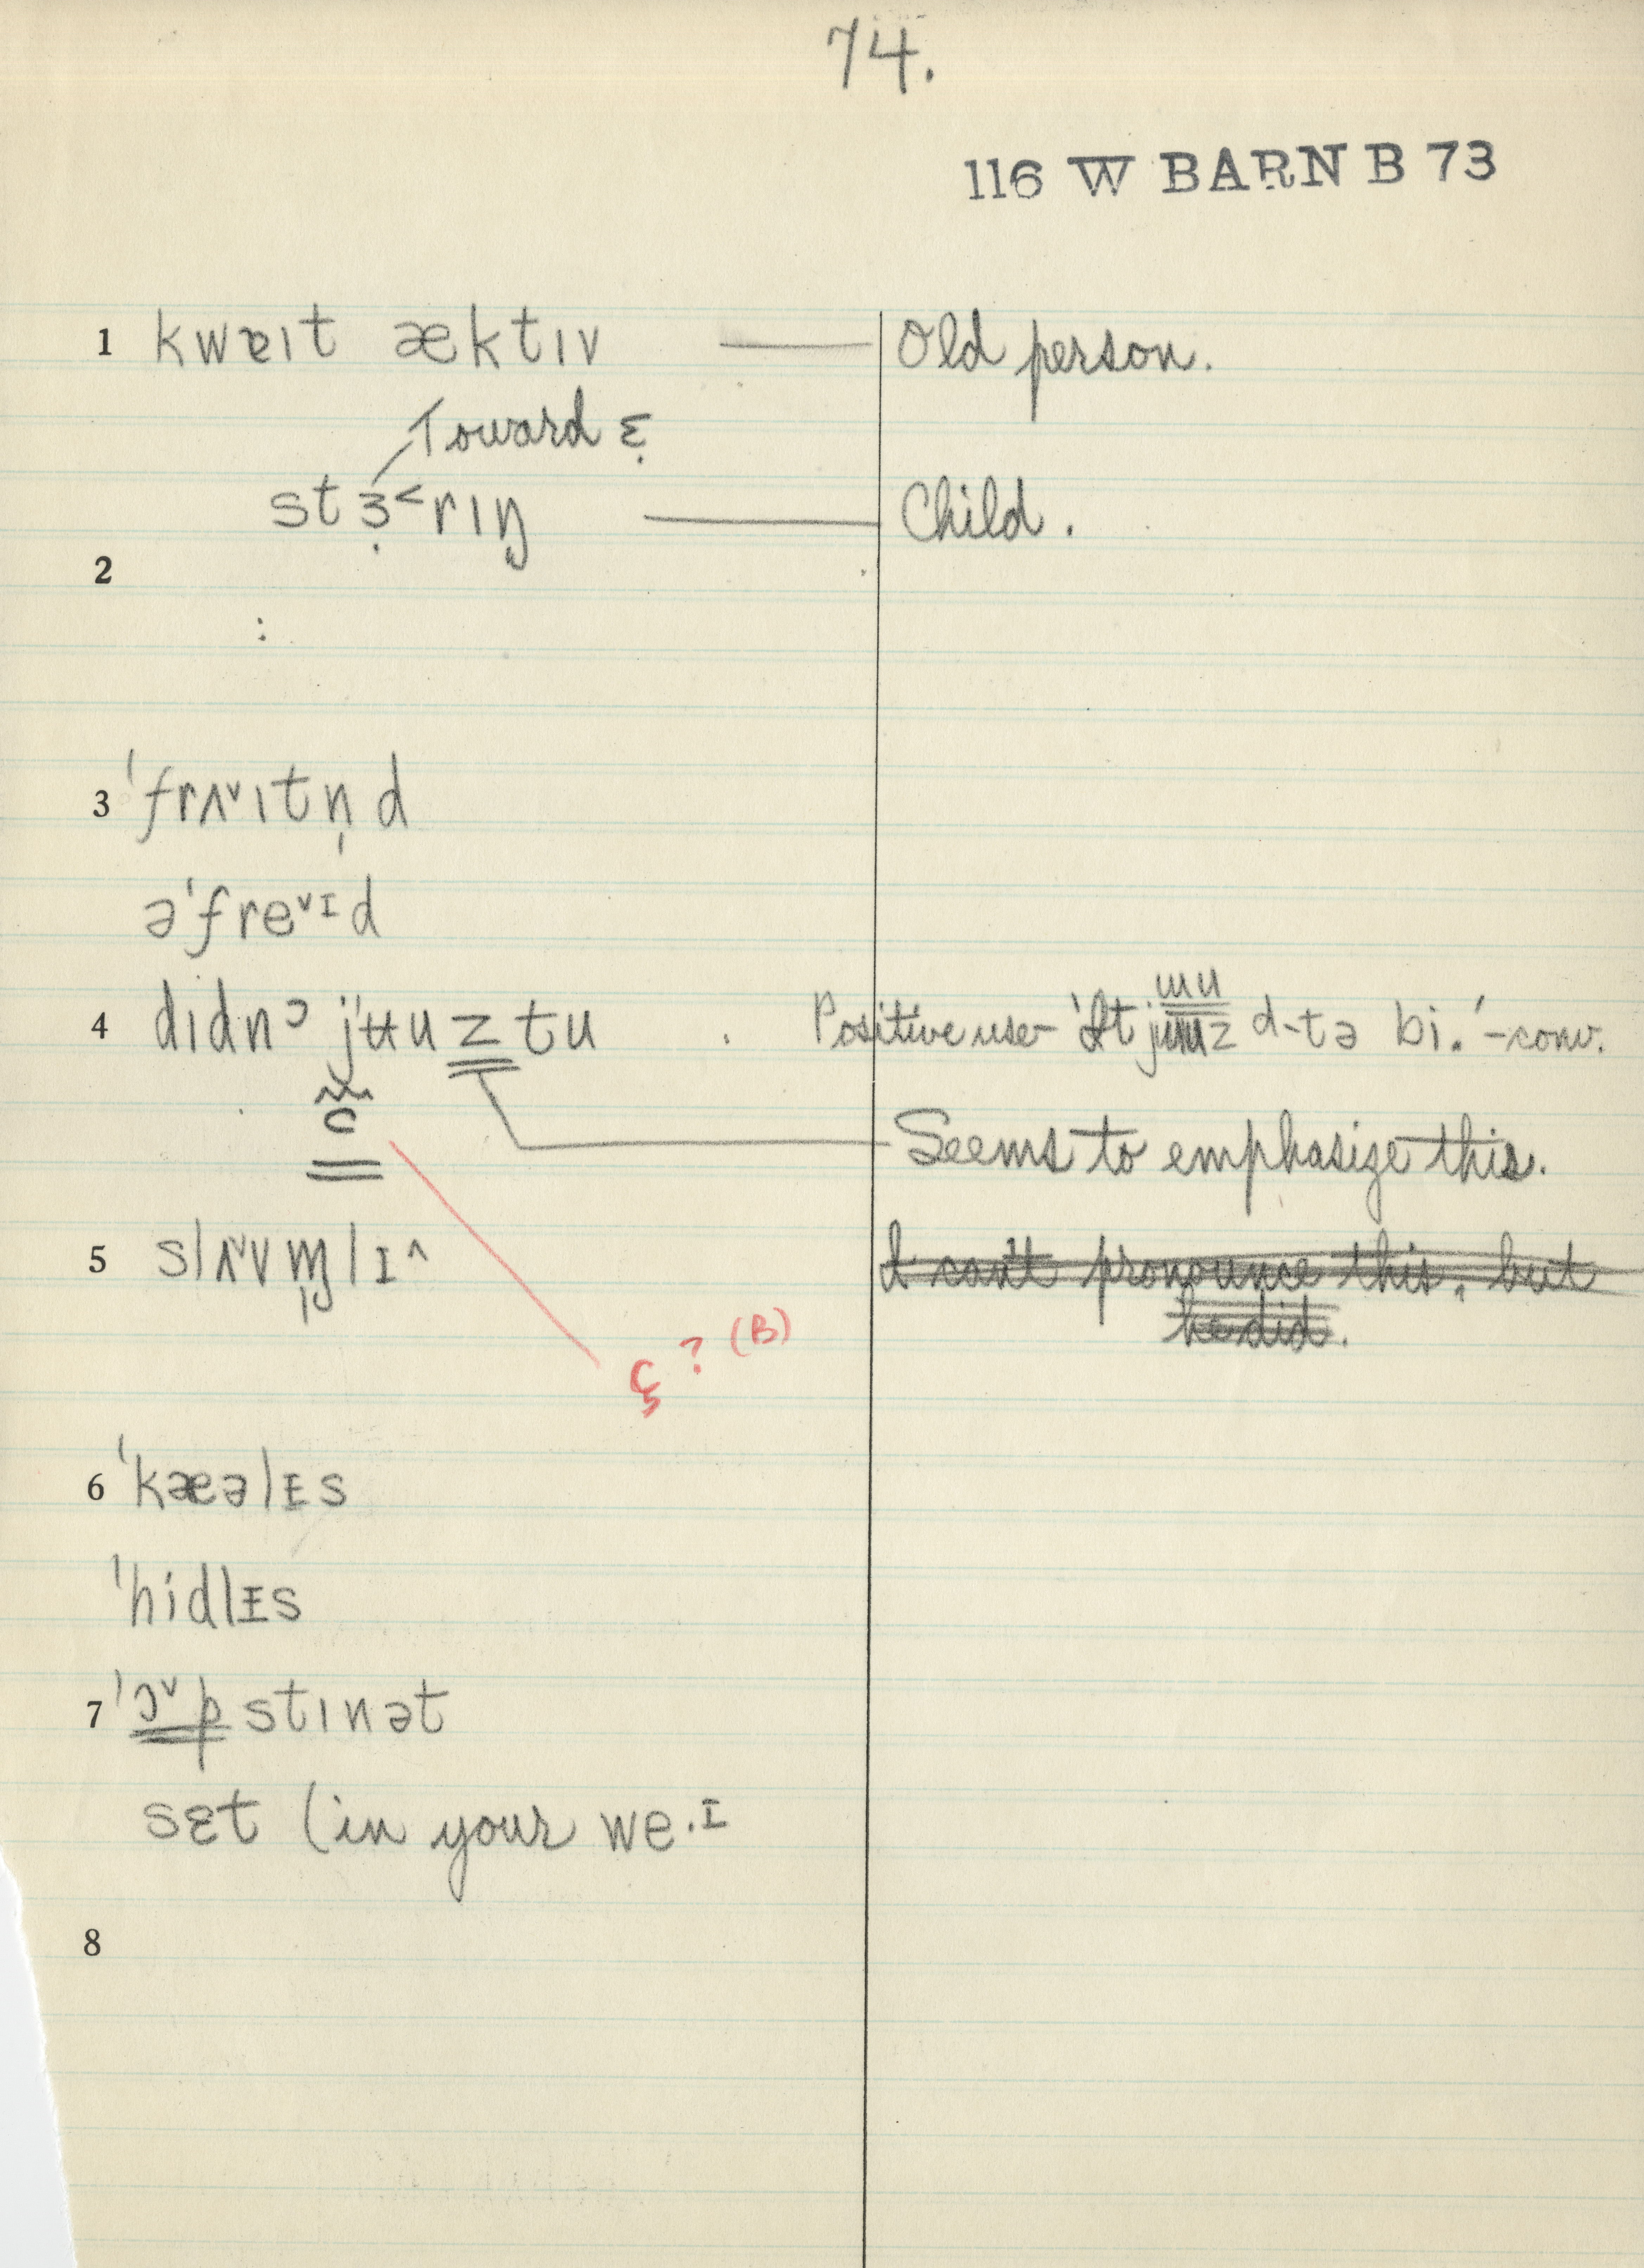 74.
116 W BARN B 73
1 kwɐɪt æktɪv — Old person.
Toward ɛ̣
stɜ̣˂rɪŋ — Child.
2
:
3 ˈfrʌ˅ɪtn̩d
əˈfre˅ɪd
4 dɪdnˀ jʉuz tu . Positive use- 'It jɯuz d-tə bi.'-conv.
c Seems to emphasize this.
5 slʌ˅vɱ̩lɪ^ I can't pronounce this, but
he did.
ç ? (B)
6 ˈkæəlɪs
ˈhidlɪs
7 ˈɔ˅pstɪnət
sɛt (in your we·ɪ
8